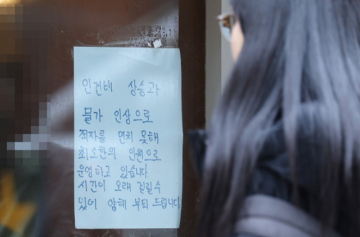 인건비 상승과
물가 인상으로
적자를 면치 못해
최소한의 인원으로
운영하고 있습니다
시간이 오래 걸릴수
있어 양해 부탁드립니다